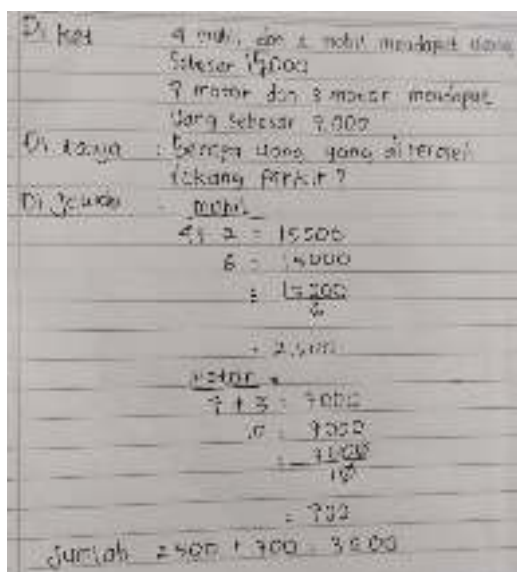 Di ket 4 mobil dan 2 mobil mendapat uang
sebesar 15,000
7 motor dan 3 motor mendapat
uang sebesar 9.000
Di tanya : berapa uang yang diperoleh
tukang parkir?
Di jawab : mobil
4+ 2 = 15500
6 = 15000
= 15000
6
= 2,500
motor
7 + 3 = 9000
10 = 9000
= 9000
10
= 900
Jumlah 2500 + 900 = 3400